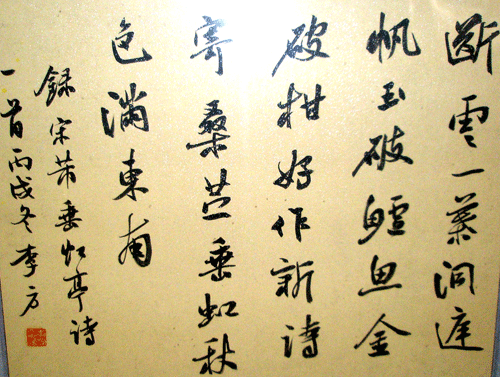 斷雲一葉洞庭
帆玉破鱸魚金
破柑好作新詩
寄桑苎垂虹秋
色滿東南
録宋芾垂虹亭詩
一首丙戌冬李方